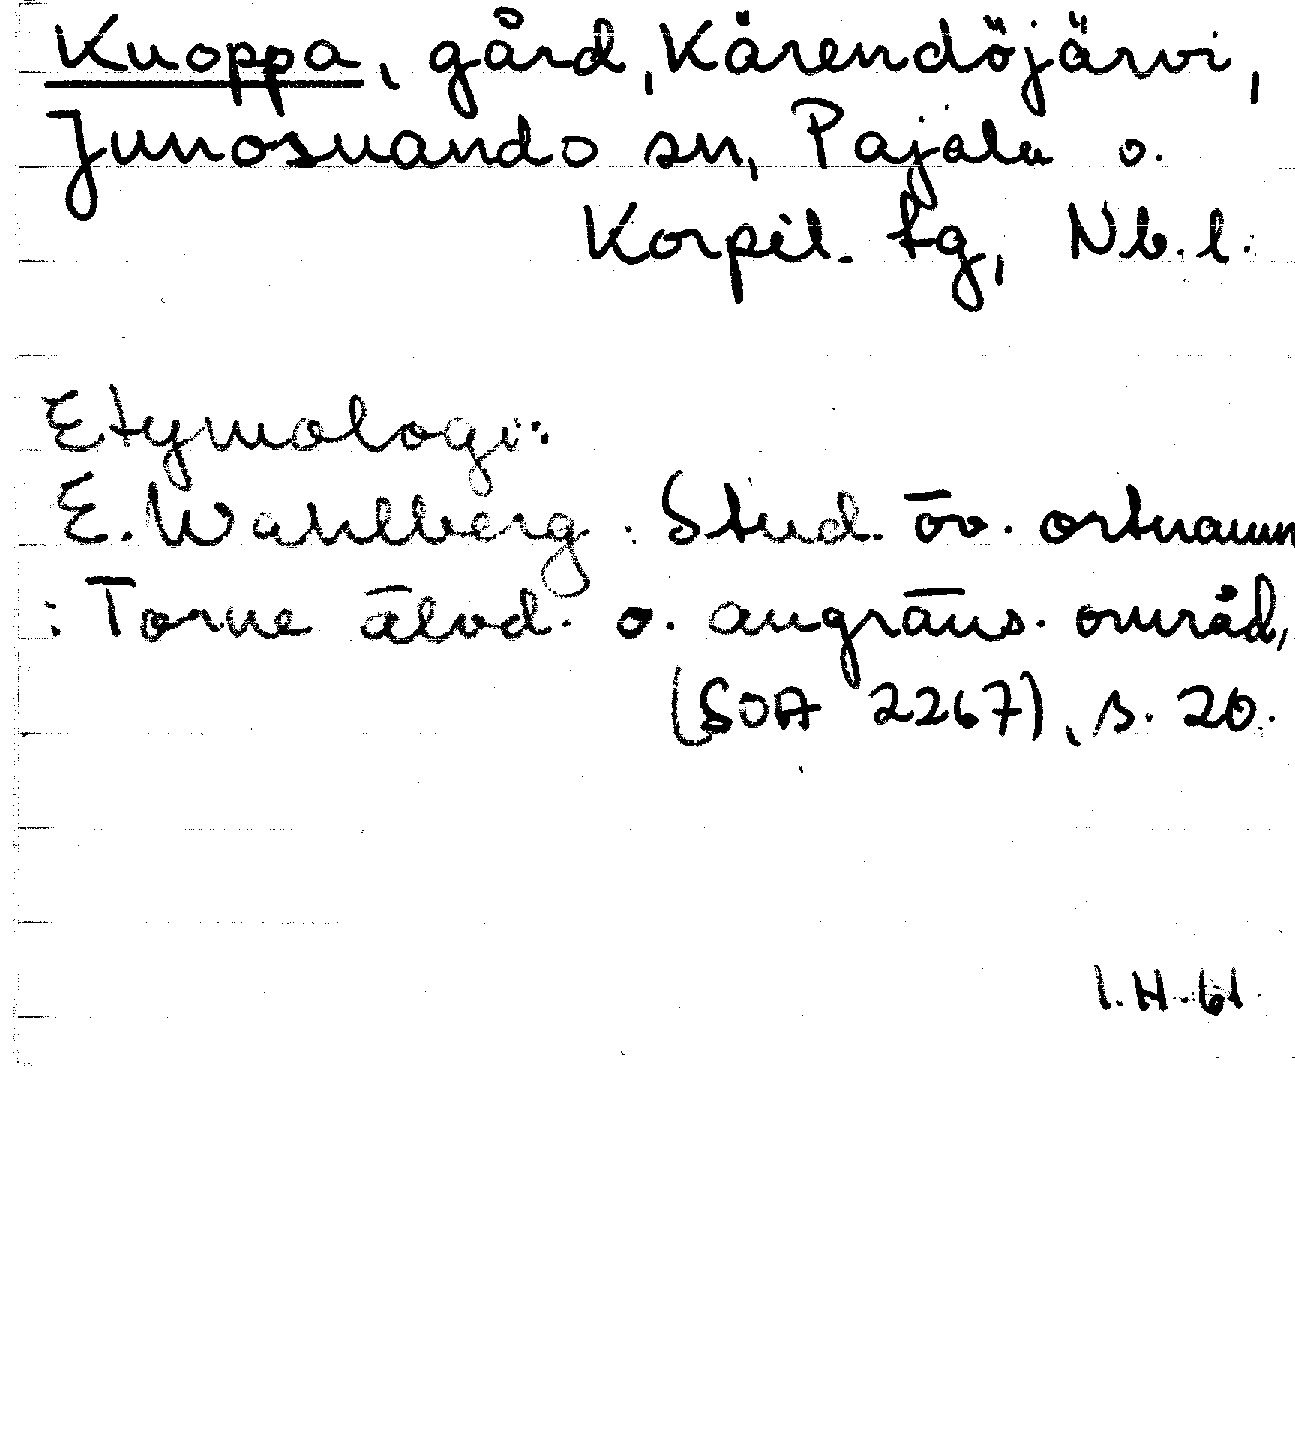 Kuoppa, gård, Kärendöjärvi,
Junosuando sn, Pajala o.
Korpil. tg, Nb. l.
Etymologi:
E. Wahlberg: Stud. öv. ortnamn
i Torne älvd. o. angräns. områd,
(SOA 2267), s. 20.
I.H. 61